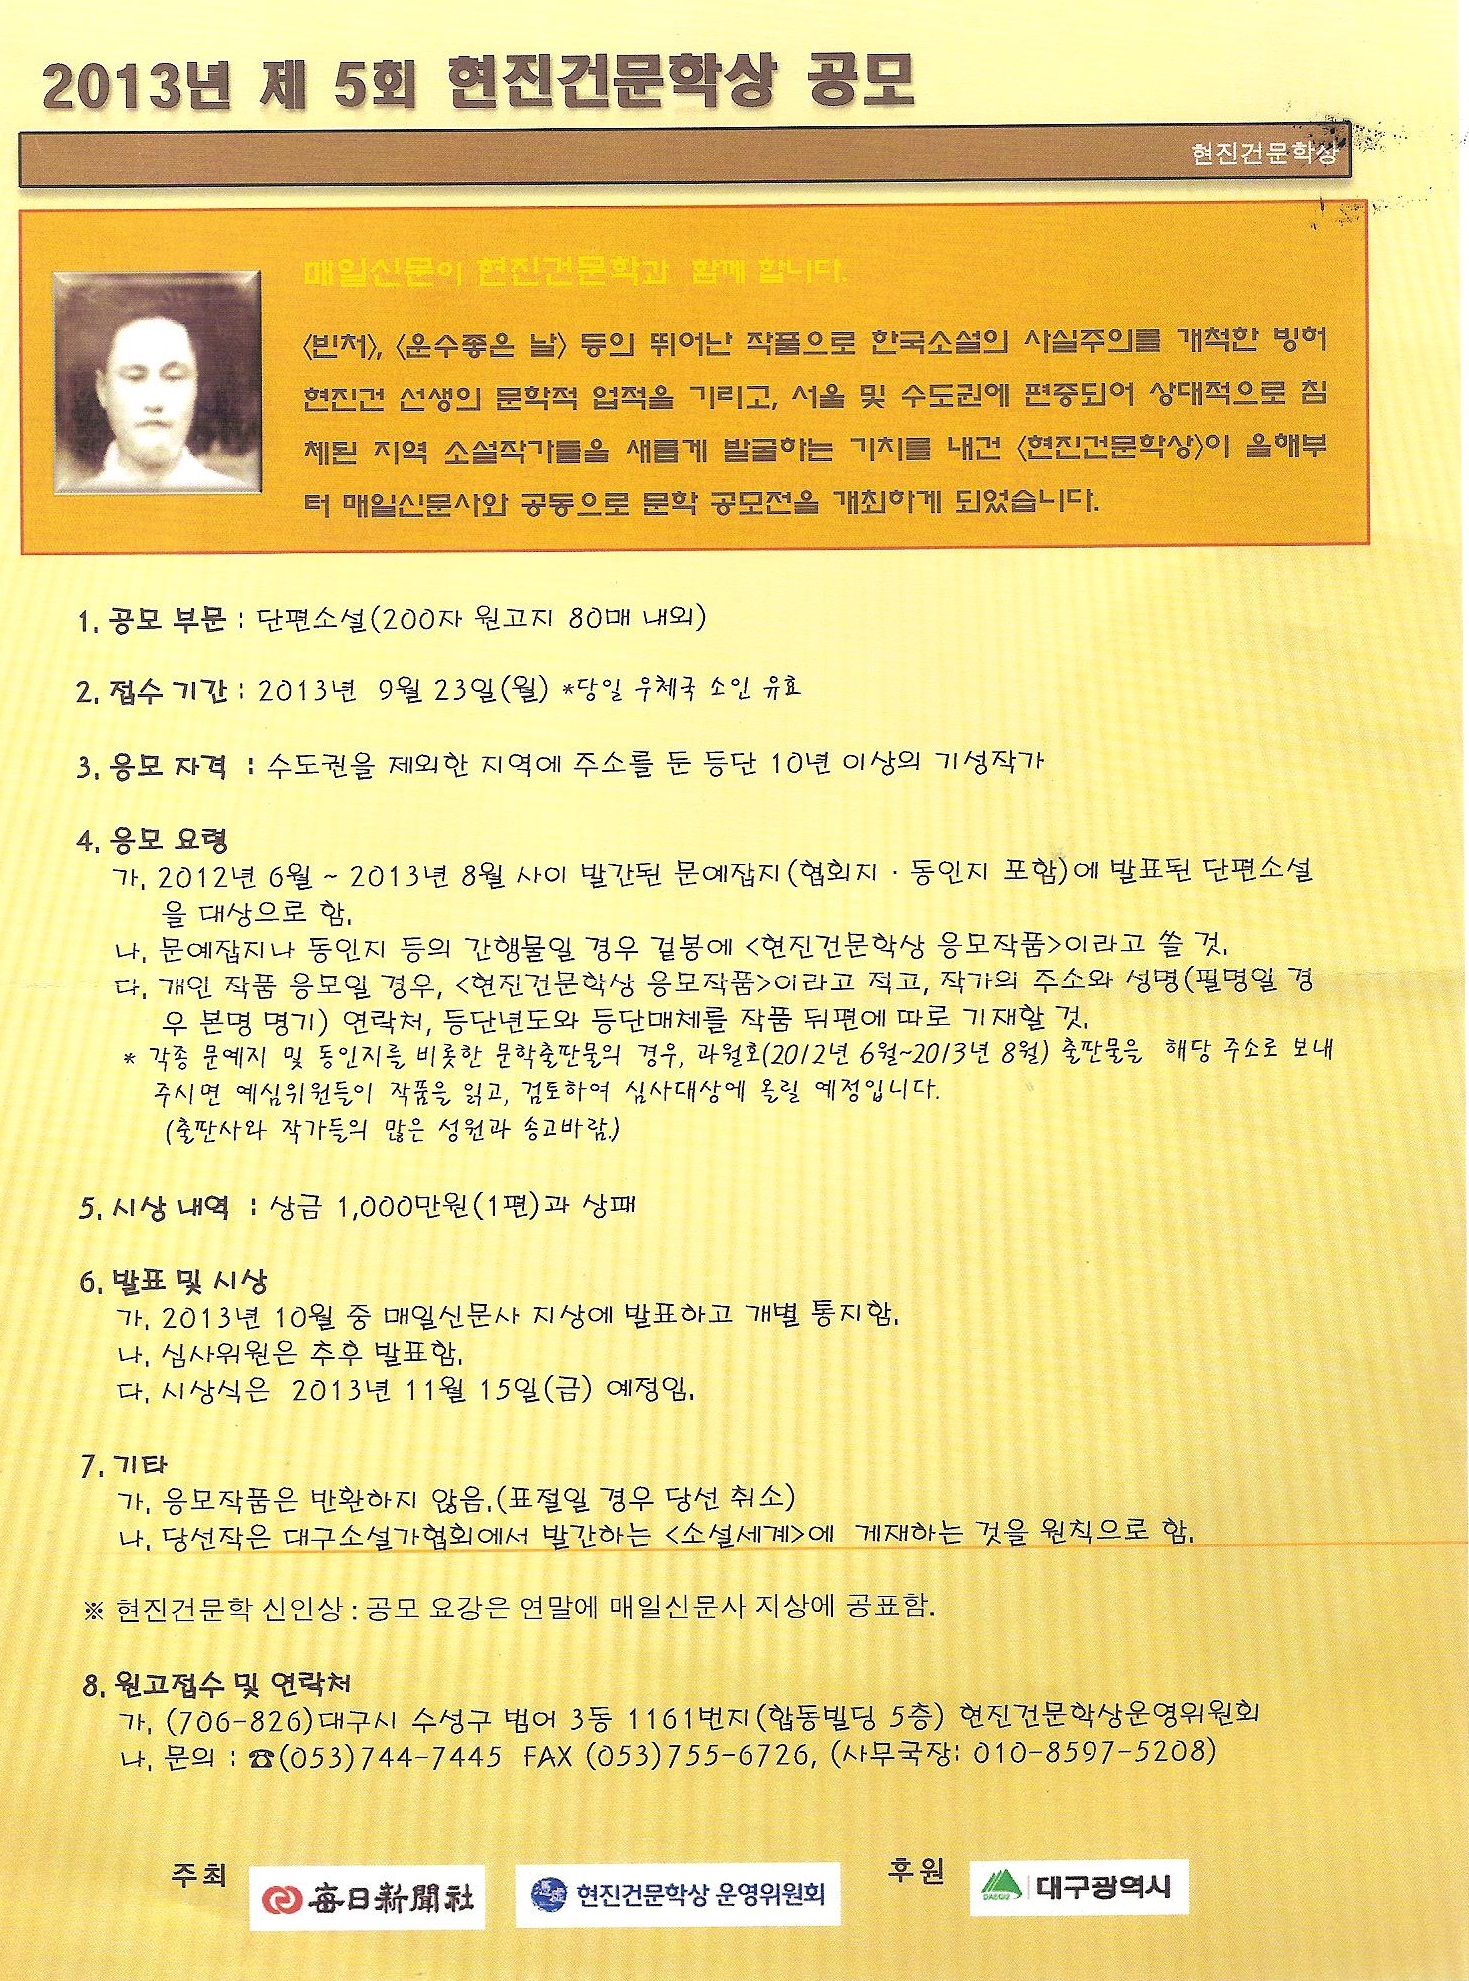 2013년 제 5회 현진건문학상 공모
현진건문학상
매일신문이 현진건문학과 함께 합니다.
〈빈처〉, 〈운수좋은 날〉 등의 뛰어난 작품으로 한국소설의 사실주의를 개척한 빙허
현진건 선생의 문학적 업적을 기리고, 서울 및 수도권에 편중되어 상대적으로 침
체된 지역 소설작가들을 새롭게 발굴하는 기치를 내건 〈현진건문학상〉이 올해부
터 매일신문사와 공동으로 문학 공모전을 개최하게 되었습니다.
1. 공모 부문 : 단편소설(200자 원고지 80매 내외)
2. 접수 기간 : 2013년 9월 23일(월) *당일 우체국 소인 유효
3. 응모 자격 : 수도권을 제외한 지역에 주소를 둔 등단 10년 이상의 기성작가
4. 응모 요령
가. 2012년 6월 ~ 2013년 8월 사이 발간된 문예잡지(협회지 · 동인지 포함)에 발표된 단편소설
을 대상으로 함.
나. 문예잡지나 동인지 등의 간행물일 경우 겉봉에 <현진건문학상 응모작품>이라고 쓸 것.
다. 개인 작품 응모일 경우, <현진건문학상 응모작품>이라고 적고, 작가의 주소와 성명(필명일 경
우 본명 명기) 연락처, 등단년도와 등단매체를 작품 뒤편에 따로 기재할 것.
* 각종 문예지 및 동인지를 비롯한 문학출판물의 경우, 과월호(2012년 6월~2013년 8월) 출판물을 해당 주소로 보내
주시면 예심위원들이 작품을 읽고, 검토하여 심사대상에 올릴 예정입니다.
(출판사와 작가들의 많은 성원과 송고바람.)
5. 시상 내역 : 상금 1,000만원(1편)과 상패
6. 발표 및 시상
가. 2013년 10월 중 매일신문사 지상에 발표하고 개별 통지함.
나. 심사위원은 추후 발표함.
다. 시상식은 2013년 11월 15일(금) 예정임.
7. 기타
가. 응모작품은 반환하지 않음.(표절일 경우 당선 취소)
나. 당선작은 대구소설가협회에서 발간하는 <소설세계>에 게재하는 것을 원칙으로 함.
※ 현진건문학 신인상 : 공모 요강은 연말에 매일신문사 지상에 공표함.
8. 원고접수 및 연락처
가. (706-826)대구시 수성구 범어 3동 1161번지(합동빌딩 5층) 현진건문학상운영위원회
나. 문의 : ☎(053)744-7445 FAX (053)755-6726, (사무국장: 010-8597-5208)
주최 每日新聞社 현진건문학상 운영위원회 후원 DAEGU 대구광역시